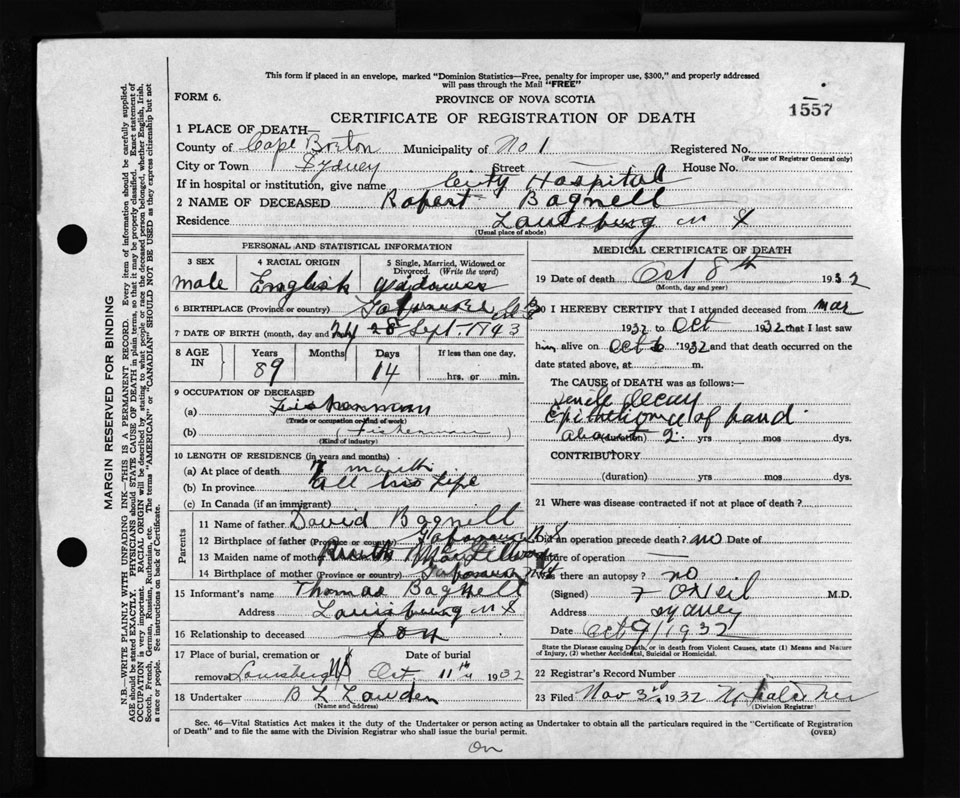 This form if placed in an envelope, marked "Dominion Statistics—Free, penalty for improper use, $300," and properly addressed
will pass through the Mail "FREE"
FORM 6.
PROVINCE OF NOVA SCOTIA
1557
CERTIFICATE OF REGISTRATION OF DEATH
1 PLACE OF DEATH—
County of Cape Breton Municipality of No 1 Registered No.
(For use of Registrar General only)
City or Town Sydney Street House No.
If in hospital or institution, give name City Hospital
2 NAME OF DECEASED Robert Bagnell
Residence Louisburg N S
(Usual place of abode)
PERSONAL AND STATISTICAL INFORMATION
3 SEX 4 RACIAL ORIGIN 5 Single, Married, Widowed or Divorced. (Write the word)
male English Widower
6 BIRTHPLACE (Province or country)
7 DATE OF BIRTH (month, day and 24 28 Sept. 1843
8 AGE IN Years Months Days If less than one day,
89 14 hrs. or min.
9 OCCUPATION OF DECEASED
(a) Fisherman
(Trade or occupation or kind of work)
(b) (Fisherman)
(Kind of industry)
10 LENGTH OF RESIDENCE (in years and months)
(a) At place of death 7 month
(b) In province all his Life
(c) In Canada (if an immigrant)
Parents
11 Name of father David Bagnell
12 Birthplace of father (Province or country) Gabarus N.S
13 Maiden name of mother Ruth
14 Birthplace of mother (Province or country) Gabarus N S
15 Informant's name Thomas Bagnell
Address Louisburg N S
16 Relationship to deceased Son
17 Place of burial, cremation or removal Date of burial
Louisburg NS Oct 11th 1932
18 Undertaker
(Name and address)
MEDICAL CERTIFICATE OF DEATH
19 Date of death Oct 8th 1932
(Month, day and year)
20 I HEREBY CERTIFY that I attended deceased from Mar
1932 to Oct 1932 that I last saw
him alive on Oct 6 1932 and that death occurred on the
date stated above, at m.
The CAUSE of DEATH was as follows:
senile decay
epithelioma of hand
about (duration) 2 yrs mos dys.
CONTRIBUTORY
(duration) yrs mos dys.
21 Where was disease contracted if not at place of death?
Did an operation precede death? no Date of
Nature of operation
Was there an autopsy? no
(Signed) F O'Neil M.D.
Address Sydney
Date Oct 9/1932
State the Disease causing Death, or in death from Violent Causes, state (1) Means and Nature
of Injury, (2) whether Accidental, Suicidal or Homicidal.
22 Registrar's Record Number
23 Filed Nov 3rd 1932
(Division Registrar)
Sec. 46—Vital Statistics Act makes it the duty of the Undertaker or person acting as Undertaker to obtain all the particulars required in the "Certificate of Registration
of Death" and to file the same with the Division Registrar who shall issue the burial permit.
(OVER)
On
MARGIN RESERVED FOR BINDING
N.B.—WRITE PLAINLY WITH UNFADING INK—THIS IS A PERMANENT RECORD. Every item of information should be carefully supplied.
AGE should be stated EXACTLY. PHYSICIANS should STATE CAUSE OF DEATH in plain terms, so that it may be properly classified. Exact statement of
OCCUPATION is very important. RACIAL ORIGIN will be described by stating to what people or race the deceased person belonged, whether English, Irish,
Scotch, French, German, Russian, Ruthenian, etc. The terms "AMERICAN" or "CANADIAN" SHOULD NOT BE USED as they express citizenship but not
a race or people. See instructions on back of Certificate.